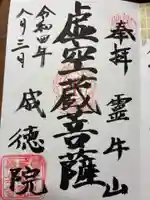 奉拝 霊牛山
虚空蔵菩薩
令和四年
八月三日
成徳院